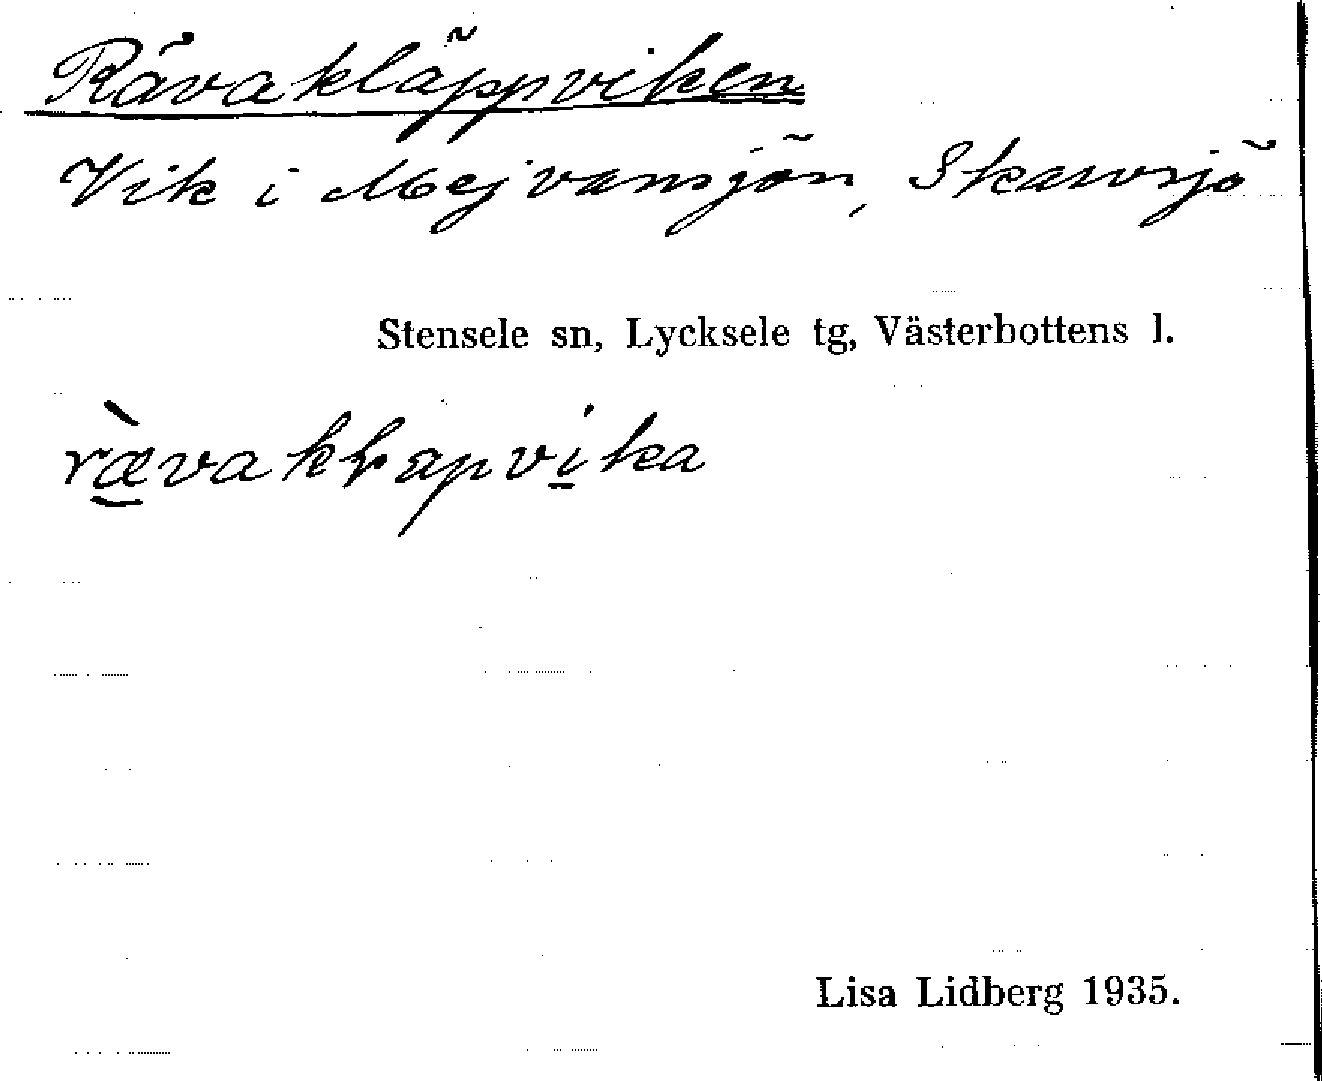 Rävakläppviken
Vik i Mejvansjön, Skansjö
Stensele sn, Lycksele tg, Västerbottens l.
Lisa Lidberg 1935.